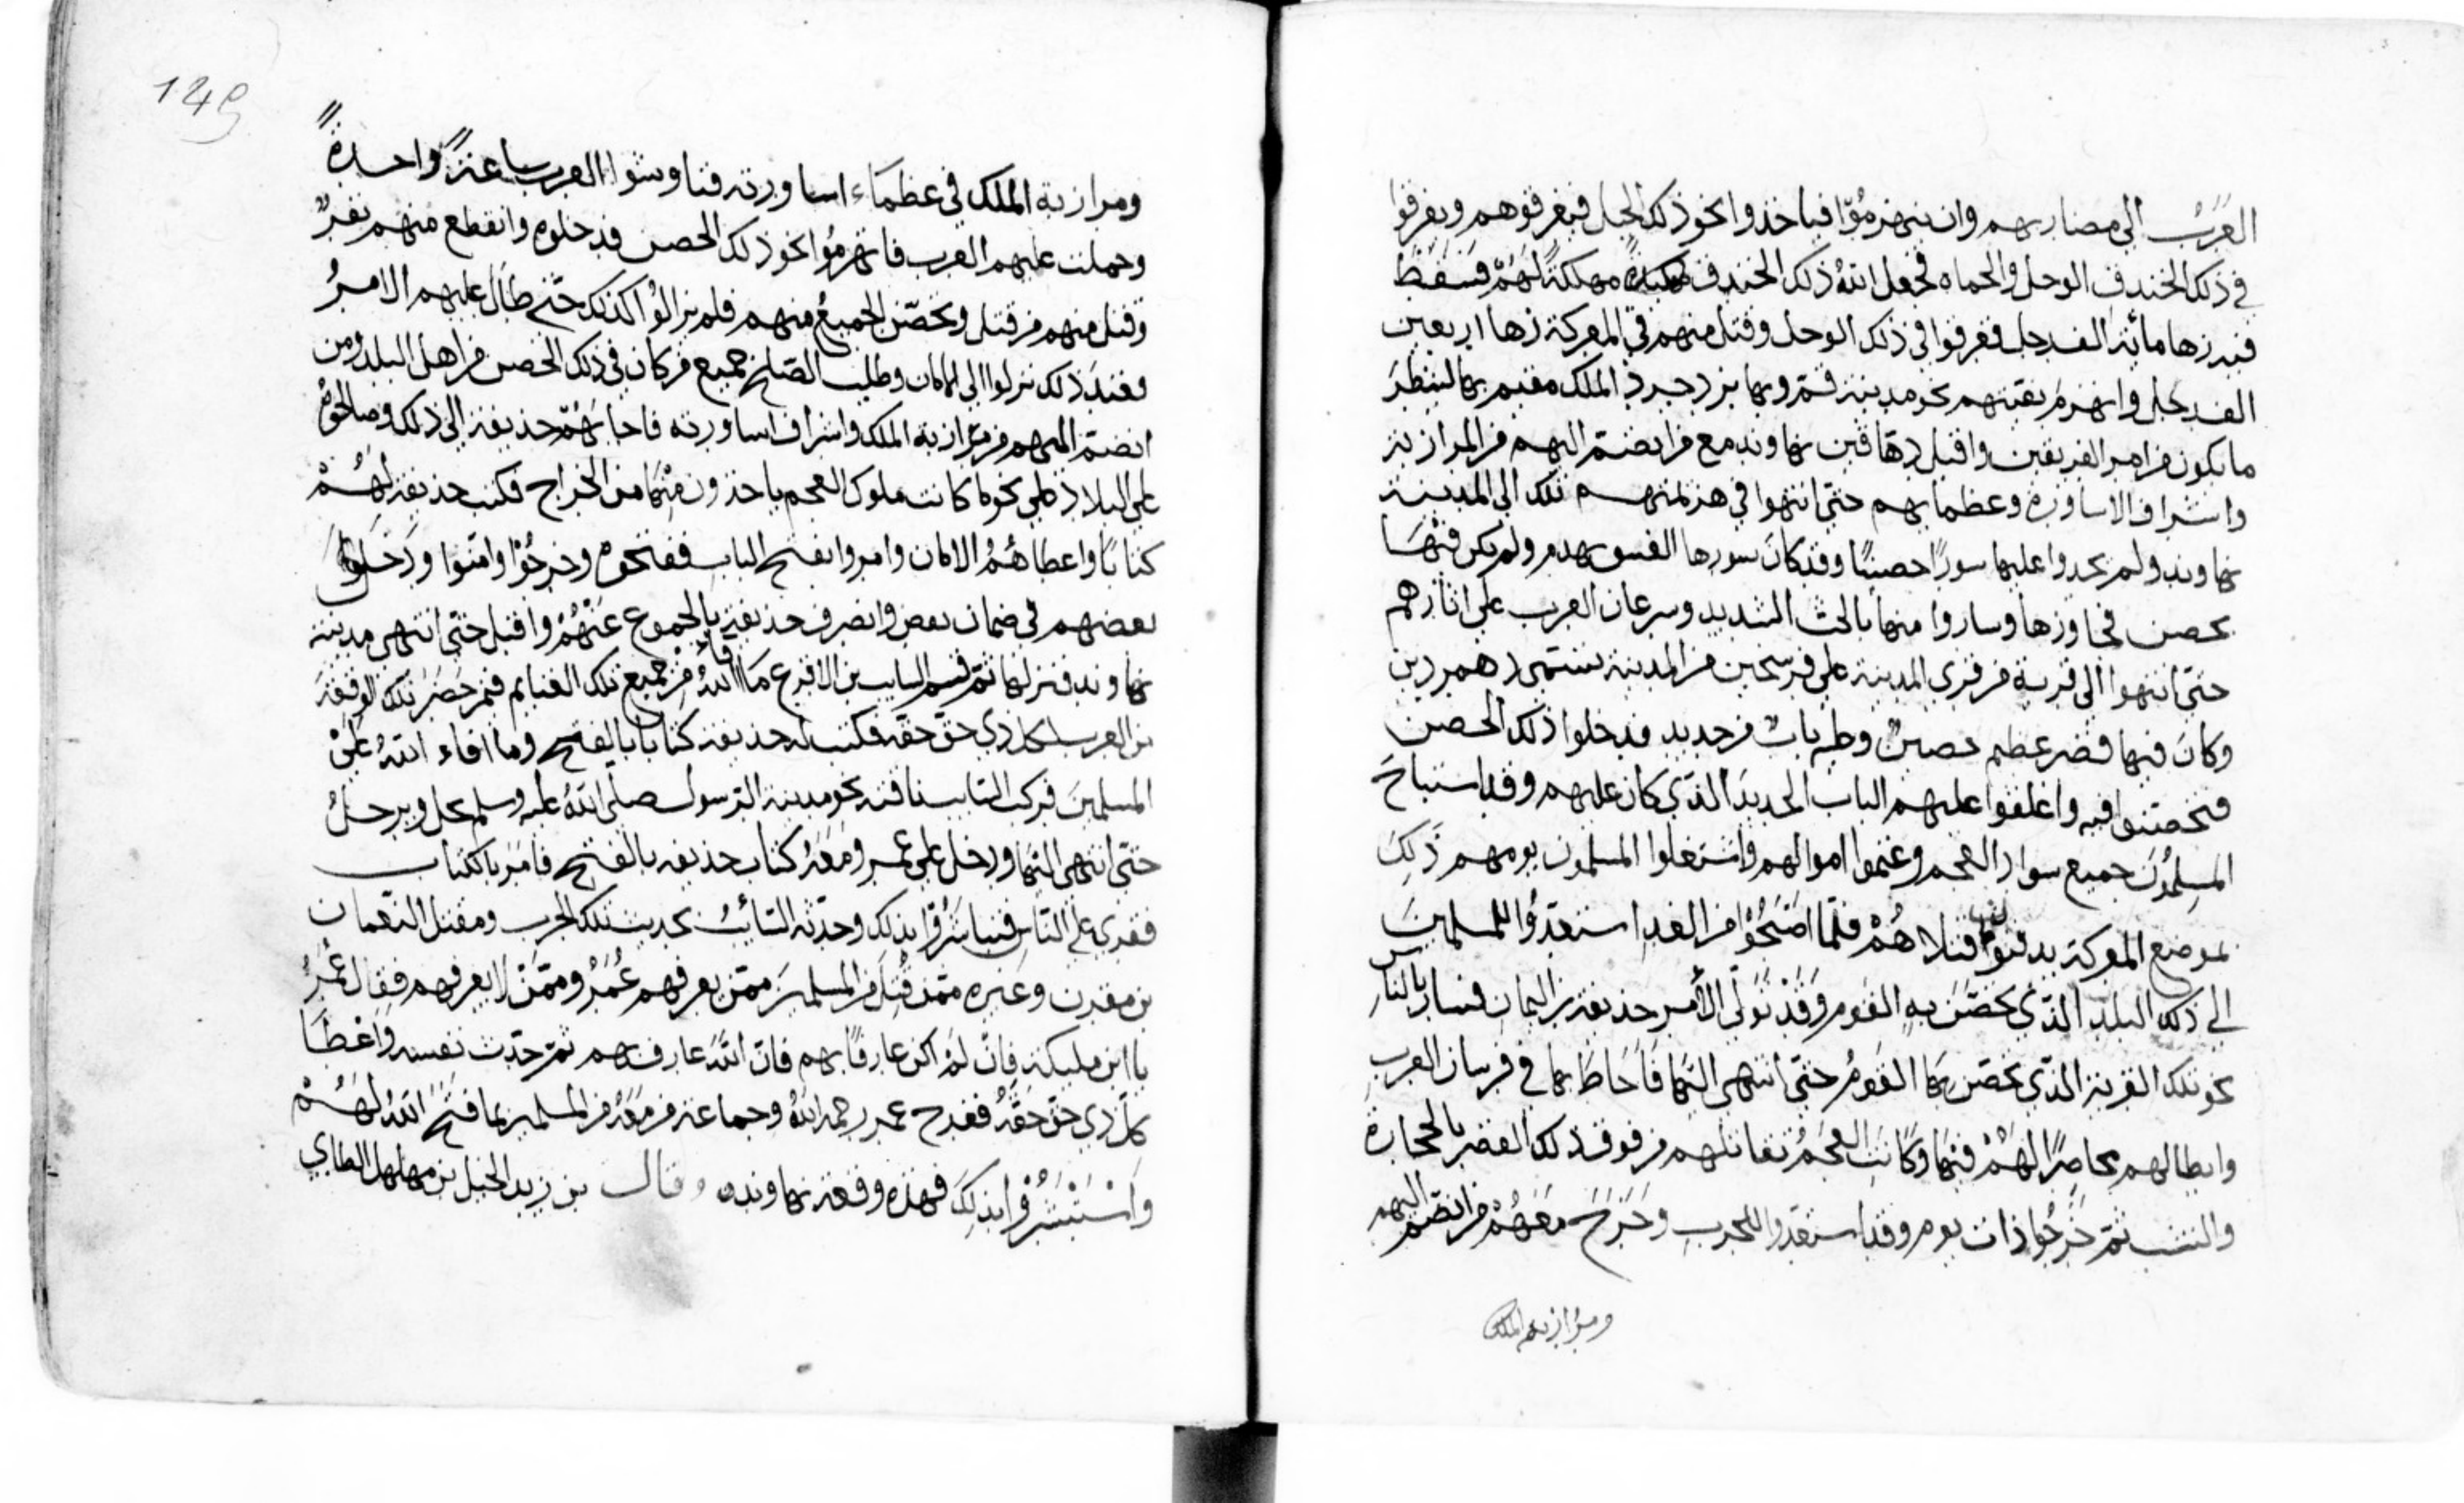 العَرَبُ الى مصاربهم وان ينهزمُوا فياخذوا نحو ذلك الجبل فيغرقوهم ويغرقوا
في ذلك الخندق الوحل والحماه فجعل اللهُ ذلك الخندق مهلكةً لهُمْ فسقط
فيه زها مائة الف رجل فغرقوا في ذلك الوحل وقتل منهم في المعركة زها اربعين
الف رجل وانهزمَ بقيتهم نحو مدينة قم وبها يزدجرد الملك مقيم بها لينظرَ
ما يكون من امر الفريقين واقبل دهاقين نهاوند مع من انضم اليهم من المرازبة
واشراف الاساورة وعظمايهم حتى انتهوا في هزيمتهم تلك الى المدينة
نهاوند ولم يجدوا عليها سورًا حصينًا وقد كانَ سورها القسوى هدم ولم يكن فيهَا
حصن فجاوزها وساروا منها بالحث الشديد وسرعان العرب على اثارهم
حتى انتهوا الى قرية من قرى المدينة على فرسخين من المدينة تسمى دهمردين
وكانَ فيها قصر عظيم حصينٌ وله بابٌ من حديد فدخلوا ذلك الحصن
فتحصنوا فيه واغلقوا عليهم الباب الحديدَ الذي كان عليهم وقد استباحَ
المسلمُونَ جميع سواد العجم وغنموا اموالهم واشتغلوا المسلمون يومهم ذَلِكَ
بموضع المعركة يدفنوا قتلاهُمْ فلمّا اصبَحُوا من الغد استعدُّوا المسلمين
الى ذلك البلد الذي تحصّنَ بهِ القوم وَقَدْ تَولّى الأمر حذيفة بن اليمان فسار بالناس
نحو تلك القرية الذي تحصّن بهَا القومُ حتى انتهى اليهَا فاَحَاطَ بها في فرسان العرب
وابطالهم محاصرًا لهُمْ فيهَا وكَانَتِ العجَمُ تقاتلهم من فوق ذلك القصر بالحجارة
والنشب ثم خَرجُوا ذات يوم وقد استعدوا للحرب وخَرَجَ معَهُمْ من انضم اليهم
ومرازبة الملك
149
ومرازبة الملك في عظمَاء اساورته فناوشوا العرب ساعةً واحدةً
وحملت عليهم العرب فانهزمُوا نحو ذلك الحصن فدخلوه وانقطع منهم نفرٌ
وقتل منهم من قتل وتحصّن الجميعُ منهم فلم يزالُوا كذلك حتى طالَ عليهم الامرُ
فعندَ ذلك نزلوا الى الامان وطلب الصلح جميع من كان في ذلك الحصن من اهل البلد ومن
انضمّ اليهم من مرازبة الملك واشراف اساورته فاجابهُمْ حذيفة الى ذلك وصالحُوهُ
على البلاد على نحو ما كانت ملوك العجم ياخذون منهَا من الخراج فكتب حذيفة لهُمْ
كتابًا واعطاهُمُ الامان وامروا بفتح الباب ففتحوه وخرجُوْا وامّنوا ودخَلوا
بعضهم في ضمان بعض وانصرف حذيفة بالجموع عَنْهُمْ واقبل حتى انتهى مدينة
نهاوند فنزلها ثمّ قسم السايب بن الاقرع مَا افاء اللهُ مِنْ جميع تلك الغنايم فيمن حَضَرَ تلك الوقعَةَ
من العرب لكل ذي حق حقه فكتب له حذيفة كتابا بالفتح وما افاء اللهُ عَلى
المسلمينَ فركب السايب ناقته نحو مدينة الرسول صلى اللهُ عليه وسلم يحل ويرحلُ
حتى انتهى اليهَا ودخل على عمر ومعَهُ كتاب حذيفه بالفتح فامَر بالكتاب
فقري على النّاس فتباشرُوا بذلك وحدّثه السّائبُ بحديث تلك الحرب ومقتل النّعمان
بن مقرن وغيره ممّن قُتِلَ من المسلمينَ ممّن يعرفهم عُمَرُ وممّنْ لا يعرفهم فقال عُمَرُ
يا ابن مليكة فان لم اكن عارفًا بهم فانّ اللهَ عارف بهم ثمّ حدّث نفسه وَاعْطَا
كلّ ذي حق حَقّهُ ففرح عمر رحمه اللهُ وجماعة من معَهُ من المسلمين بما فَتحَ اللهُ لهُمْ
وَاسْتبْشَرُوا بذلِكَ فهذه وقعة نهاونده وقال بن زيد الخيل بن مهلهل الطاي